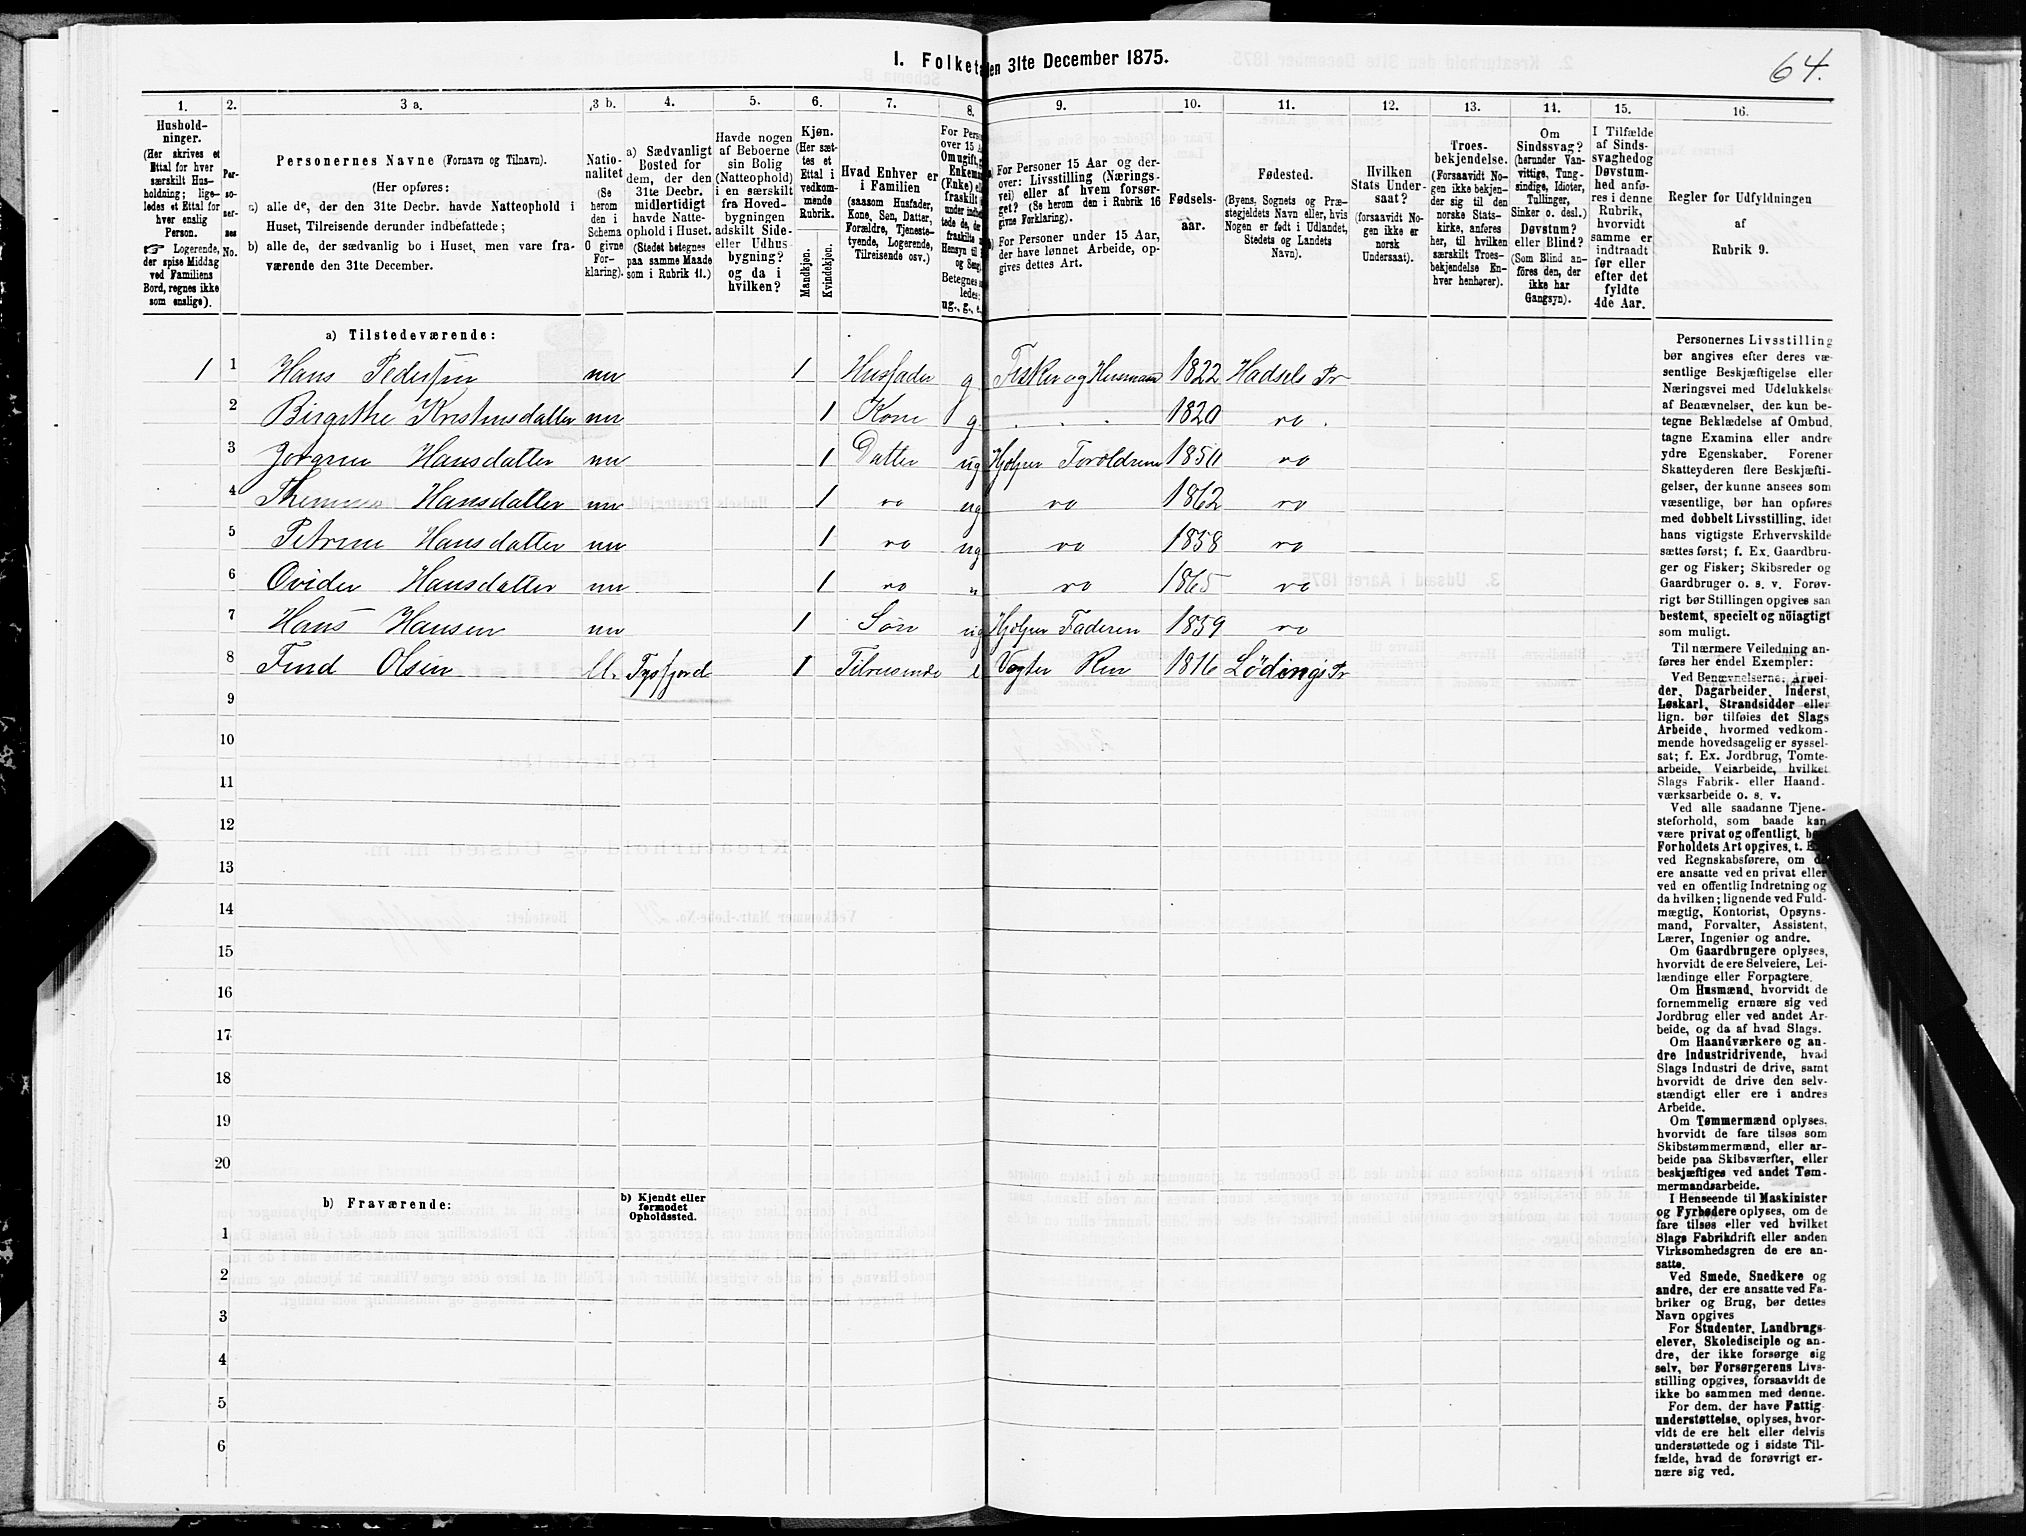 1. Folketæ
en 31te December 1875.
64.
1.
2.
3 a.
3 b.
4.
5.
6.
7.
8.
9.
10.
11.
12.
13.
14.
15.
16.
Hushold-
ninger.
(Her skrives et
Ettal for hver
særskilt Hus-
holdning; lige-
ledes et Ettal for
hver enslig
Person.
☞ Logerende,
der spise Middag
ved Familiens
Bord, regnes ikke
som enslige).
Per-
so-
ner-
nes
No.
Personernes Navne (Fornavn og Tilnavn).
(Her opføres:
a) alle de, der den 31te Decbr. havde Natteophold i
Huset, Tilreisende derunder indbefattede;
b) alle de, der sædvanlig bo i Huset, men vare fra-
værende den 31te December.
Natio-
nalitet
(Se
herom
den i
Schema
O givne
For-
klaring).
a) Sædvanligt
Bosted for
dem, der den
31te Decbr.
midlertidigt
havde Natte-
ophold i Huset.
(Stedet betegnes
paa samme Maade
som i Rubrik 11.)
Havde nogen
af Beboerne
sin Bolig
(Natteophold)
i en særskilt
fra Hoved-
bygningen
adskilt Side-
eller Udhus-
bygning?
og da i
hvilken?
Kjøn.
(Her sæt-
tes et
Ettal i
vedkom-
mende
Rubrik.
Mandkjøn.
Kvindekjøn.
Hvad Enhver er
i Familien
(saasom Husfader,
Kone, Søn, Datter,
Forældre, Tjeneste-
tyende, Logerende,
Tilreisende osv.)
For Perso
over 15 A
Om ugift, g
Enkema
(Enke) el
fraskilt
a) For Personer 15 Aar og der-
over: Livsstilling (Nærings-
vei) eller af hvem forsør-
get? (Se herom den i Rubrik 16
givne Forklaring).
b) For Personer under 15 Aar,
der have lønnet Arbeide, op-
gives dettes Art.
Fødsels-
aar.
Fødested.
(Byens, Sognets og Præ-
stegjeldets Navn eller, hvis
Nogen er født i Udlandet,
Stedets og Landets
Navn).
Hvilken
Stats Under-
saat?
(forsaavidt No-
gen ikke er
norsk
Undersaat).
Troes-
bekjendelse.
(Forsaavidt No-
gen ikke bekjen-
der sig til den
norske Stats-
kirke, anføres
her, til hvilken
særskilt Troes-
bekjendelse En-
hver henhører).
Om
Sindssvag?
(herunder Van-
vittige, Tung-
sindige, Idioter,
Tullinger,
Sinker o. desl.)
Døvstum?
eller Blind?
(Som Blind an-
føres den, der
ikke har
Gangsyn).
I Tilfælde
af Sinds-
svaghed og
Døvstum-
hed anfø-
res i denne
Rubrik,
hvorvidt
samme er
indtraadt
før eller
efter det
fyldte
4de Aar.
Regler for Udfyldningen
af
Rubrik 9.
a) Tilstedeværende:
1 1 Hans Pedersen nn 1 Husfader g Fisker og Husmand 1822 Hadsels Pr
2 Birgithe Kristensdatter nn 1 Kone g 1820 ro
3 Jørgine Hansdatter nn 1 Datter ug Hjelper Foreldrene 1850 ro
4 Hansdatter nn 1 ro ug ro 1862 ro
5 Petrine Hansdatter nn 1 ro ug ro 1858 ro
6 Ovidie Hansdatter nn 1 ro " ro 1865 ro
7 Hans Hansen nn 1 Søn ug Hjelper Faderen 1859 ro
8 Find Olsen ll. Tysfjord 1 Tilreisende Vogter Ren 1816 Lödings Pr
9
10
11
12
13
14
15
16
17
18
19
20
b) Fraværende:
b) Kjendt eller
formodet
Opholdssted.
1
2
3
4
5
6
Personernes Livsstilling
bør angives efter deres væ-
sentlige Beskjæftigelse eller
Næringsvei med Udelukkelse
af Benævnelser, der kun be-
tegne Beklædelse af Ombud,
tagne Examina eller andre
ydre Egenskaber. Forener
Skatteyderen flere Beskjæfti-
gelser, der kunne ansees som
væsentlige, bør han opføres
med dobbelt Livsstilling, idet
hans vigtigste Erhvervskilde
sættes først; f. Ex. Gaardbru-
ger og Fisker; Skibsreder og
Gaardbruger o. s. v. Forøv-
rigt bør Stillingen opgives saa
bestemt, specielt og nöiagtigt
som muligt.
Til nærmere Veiledning an-
føres her endel Exempler:
Ved Benævnelserne: Arbei-
der, Dagarbeider, Inderst,
Løskarl, Strandsidder eller
lign. bør tilføies det Slags
Arbeide, hvormed vedkom-
mende hovedsagelig er syssel-
sat; f. Ex. Jordbrug, Tomte-
arbeide, Veiarbeide, hvilket
Slags Fabrik- eller Haand-
værksarbeide o. s. v.
Ved alle saadanne Tjene-
steforhold, som baade kan
være privat og offentligt, bør
Forholdets Art opgives, t. Ex.
ved Regnskabsførere, om de
ere ansatte ved en privat eller
ved en offentlig Indretning og
da hvilken; lignende ved Fuld-
mægtig, Kontorist, Opsyns-
mand, Forvalter, Assistent,
Lærer, Ingeniør og andre.
Om Gaardbrugere oplyses,
hvorvidt de ere Selveiere, Lei-
lændinge eller Forpagtere.
Om Husmænd, hvorvidt de
fornemmelig ernære sig ved
Jordbrug eller ved andet Ar-
beide, og da af hvad Slags.
Om Haandværkere og an-
dre Industridrivende, hvad
Slags Industri de drive, samt
hvorvidt de drive den selv-
stændigt eller ere i andres
Arbeide.
Om Tømmermænd oplyses,
hvorvidt de fare tilsøs som
Skibstømmermænd, eller ar-
beide paa Skibsværfter, eller
beskjæftiges ved andet Tøm-
mermandsarbeide.
I Henseende til Maskinister
og Fyrbødere oplyses, om de
fare tilsøs eller ved hvilket
Slags Fabrikdrift eller anden
Virksomhedsgren de ere an-
satte.
Ved Smede, Snedkere og
andre, der ere ansatte ved Fa-
briker og Brug, bør dettes
Navn opgives
For Studenter, Landbrugs-
elever, Skoledisciple og an-
dre, der ikke forsørge sig
selv, bør Forsørgerens Livs-
stilling opgives, forsaavidt de
ikke bo sammen med denne.
For dem, der have Fattig-
understøttelse, oplyses, hvor-
vidt de ere helt eller delvis
understøttede og i sidste Til-
fælde, hvad de forøvrigt er-
nære sig ved.